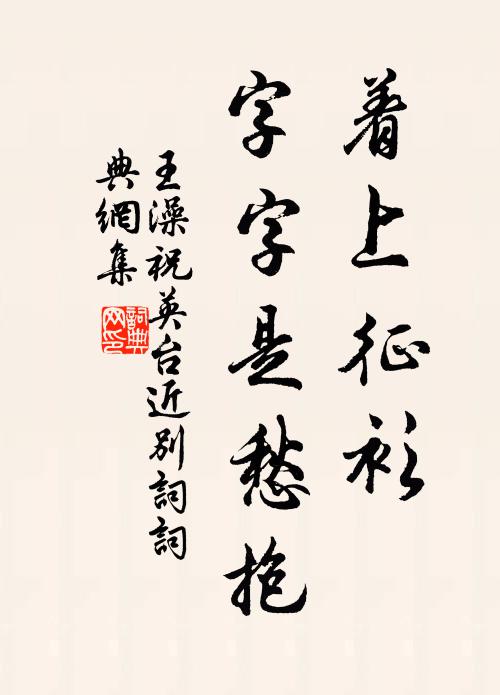 着上征衫
字字是愁抱
王澡祝英台近別詞詞
典網集
詞典
网印